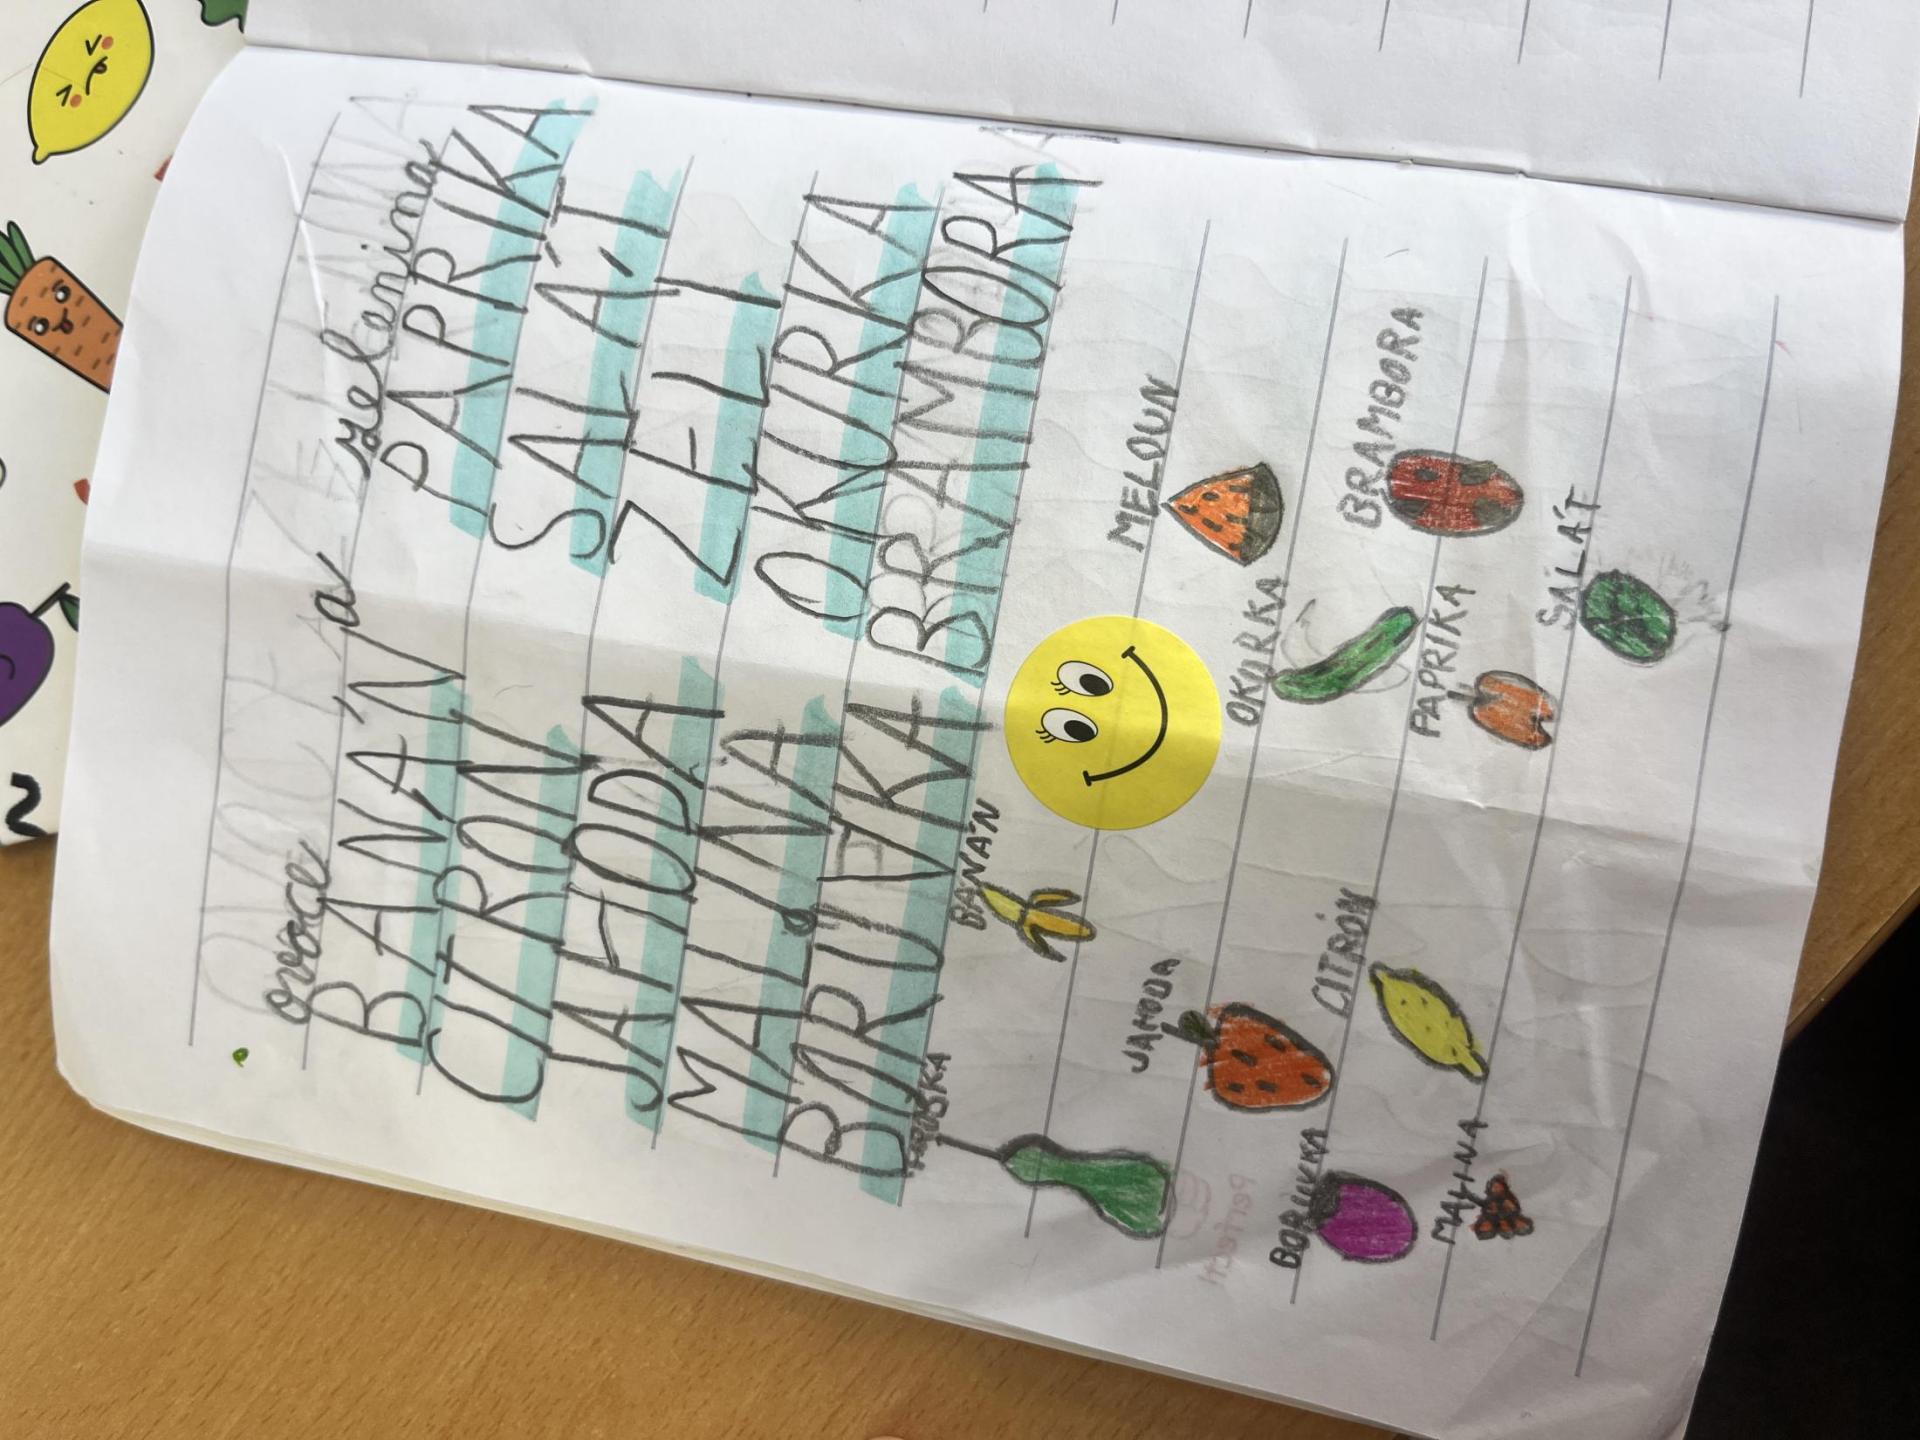 ovoce a zelenina
BANÁN PAPRIKA
CITRON SALÁT
JAHODA ZELI
MALINA OKURKA
BORUVKA BRAMBORA
BANÁN MELOUN
JAHODA OKURKA BRAMBORA
BORUVKA CITRÓN PAPRIKA SALÁT
MALINA